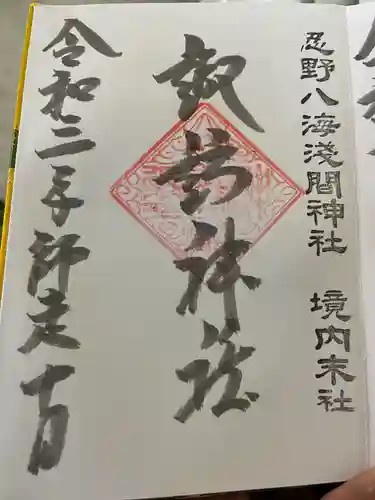 忍野八海淺間神社 境内末社
諏訪神社
令和二年師走十日